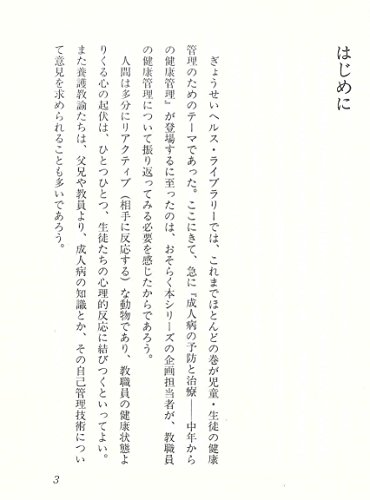 はじめに
ぎょうせいヘルス・ライブラリーでは、これまでほとんどの巻が児童・生徒の健康
管理のためのテーマであった。ここにきて、急に『成人病の予防と治療――中年から
の健康管理』が登場するに至ったのは、おそらく本シリーズの企画担当者が、教職員
の健康管理について振り返ってみる必要を感じたからであろう。
人間は多分にリアクティブ（相手に反応する）な動物であり、教職員の健康状態よ
りくる心の起伏は、ひとつひとつ、生徒たちの心理的反応に結びつくといってよい。
また養護教諭たちは、父兄や教員より、成人病の知識とか、その自己管理技術につい
て意見を求められることも多いであろう。
3